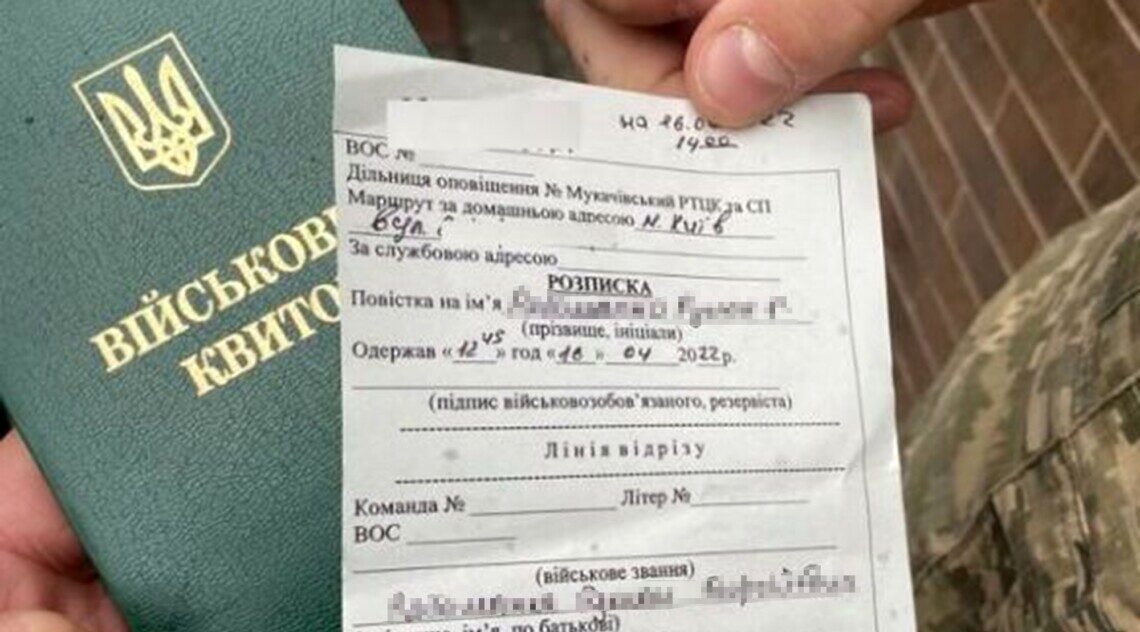 ВІЙСЬКОВ
КВИТО
на 16.0 22
14 00
ВОС №
Дільниця оповіщення № Мукачівський РТЦК та СП
Маршрут за домашньою адресою м. Київ
вул
За службовою адресою
РОЗПИСКА
Повістка на ім'я
(прізвище, ініціали)
Одержав «12 45» год «16» 04 2022 р.
(підпис військовозобов'язаного, резервіста)
Лінія відрізу
Команда № Літер №
ВОС
(військове звання)
ім'я, по батькові)